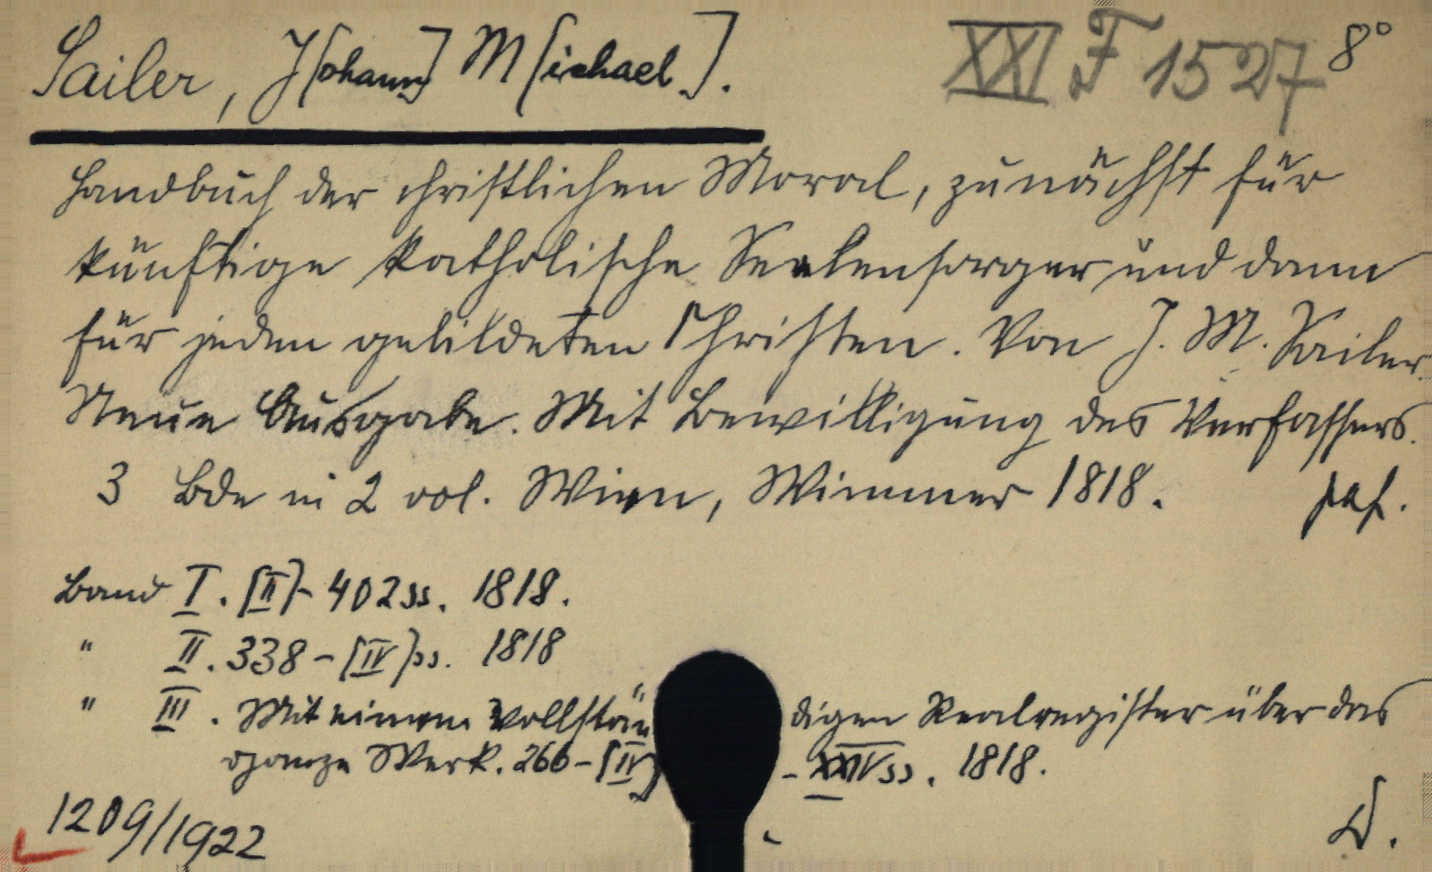 Sailer, J[ohann] M[ichael]. XXI F 1527 8°
Handbuch der christlichen Moral, zunächst für
künftige katholische Seelensorger und dann
für jeden gebildeten Christen. Von J. M. Sailer.
Neue Ausgabe. Mit Bewilligung des Verfassers.
3 Bde in 2 vol. Wien, Wimmer 1818.
Band I. [II]-402 ss. 1818.
" II. 338-[IV] ss. 1818
" III. Mit einem vollständigen Realregister über das
ganze Werk. 266-[IV] - XXIV ss. 1818.
1209/1922 D.